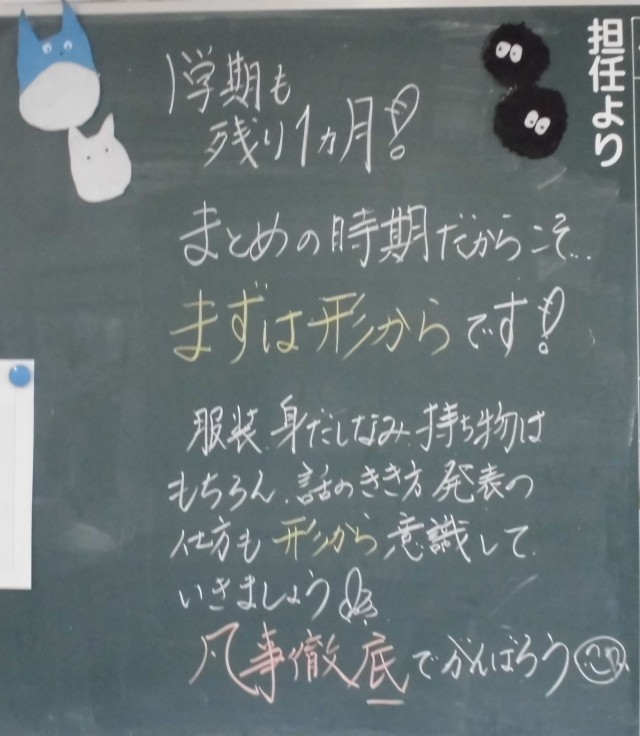 担任より
1学期も
残り1ヵ月!
まとめの時期だからこそ...
まずは形からです!
服装、身だしなみ、持ち物は
もちろん、話のきき方、発表の
仕方も形から意識して
いきましょう
凡事徹底でがんばろう